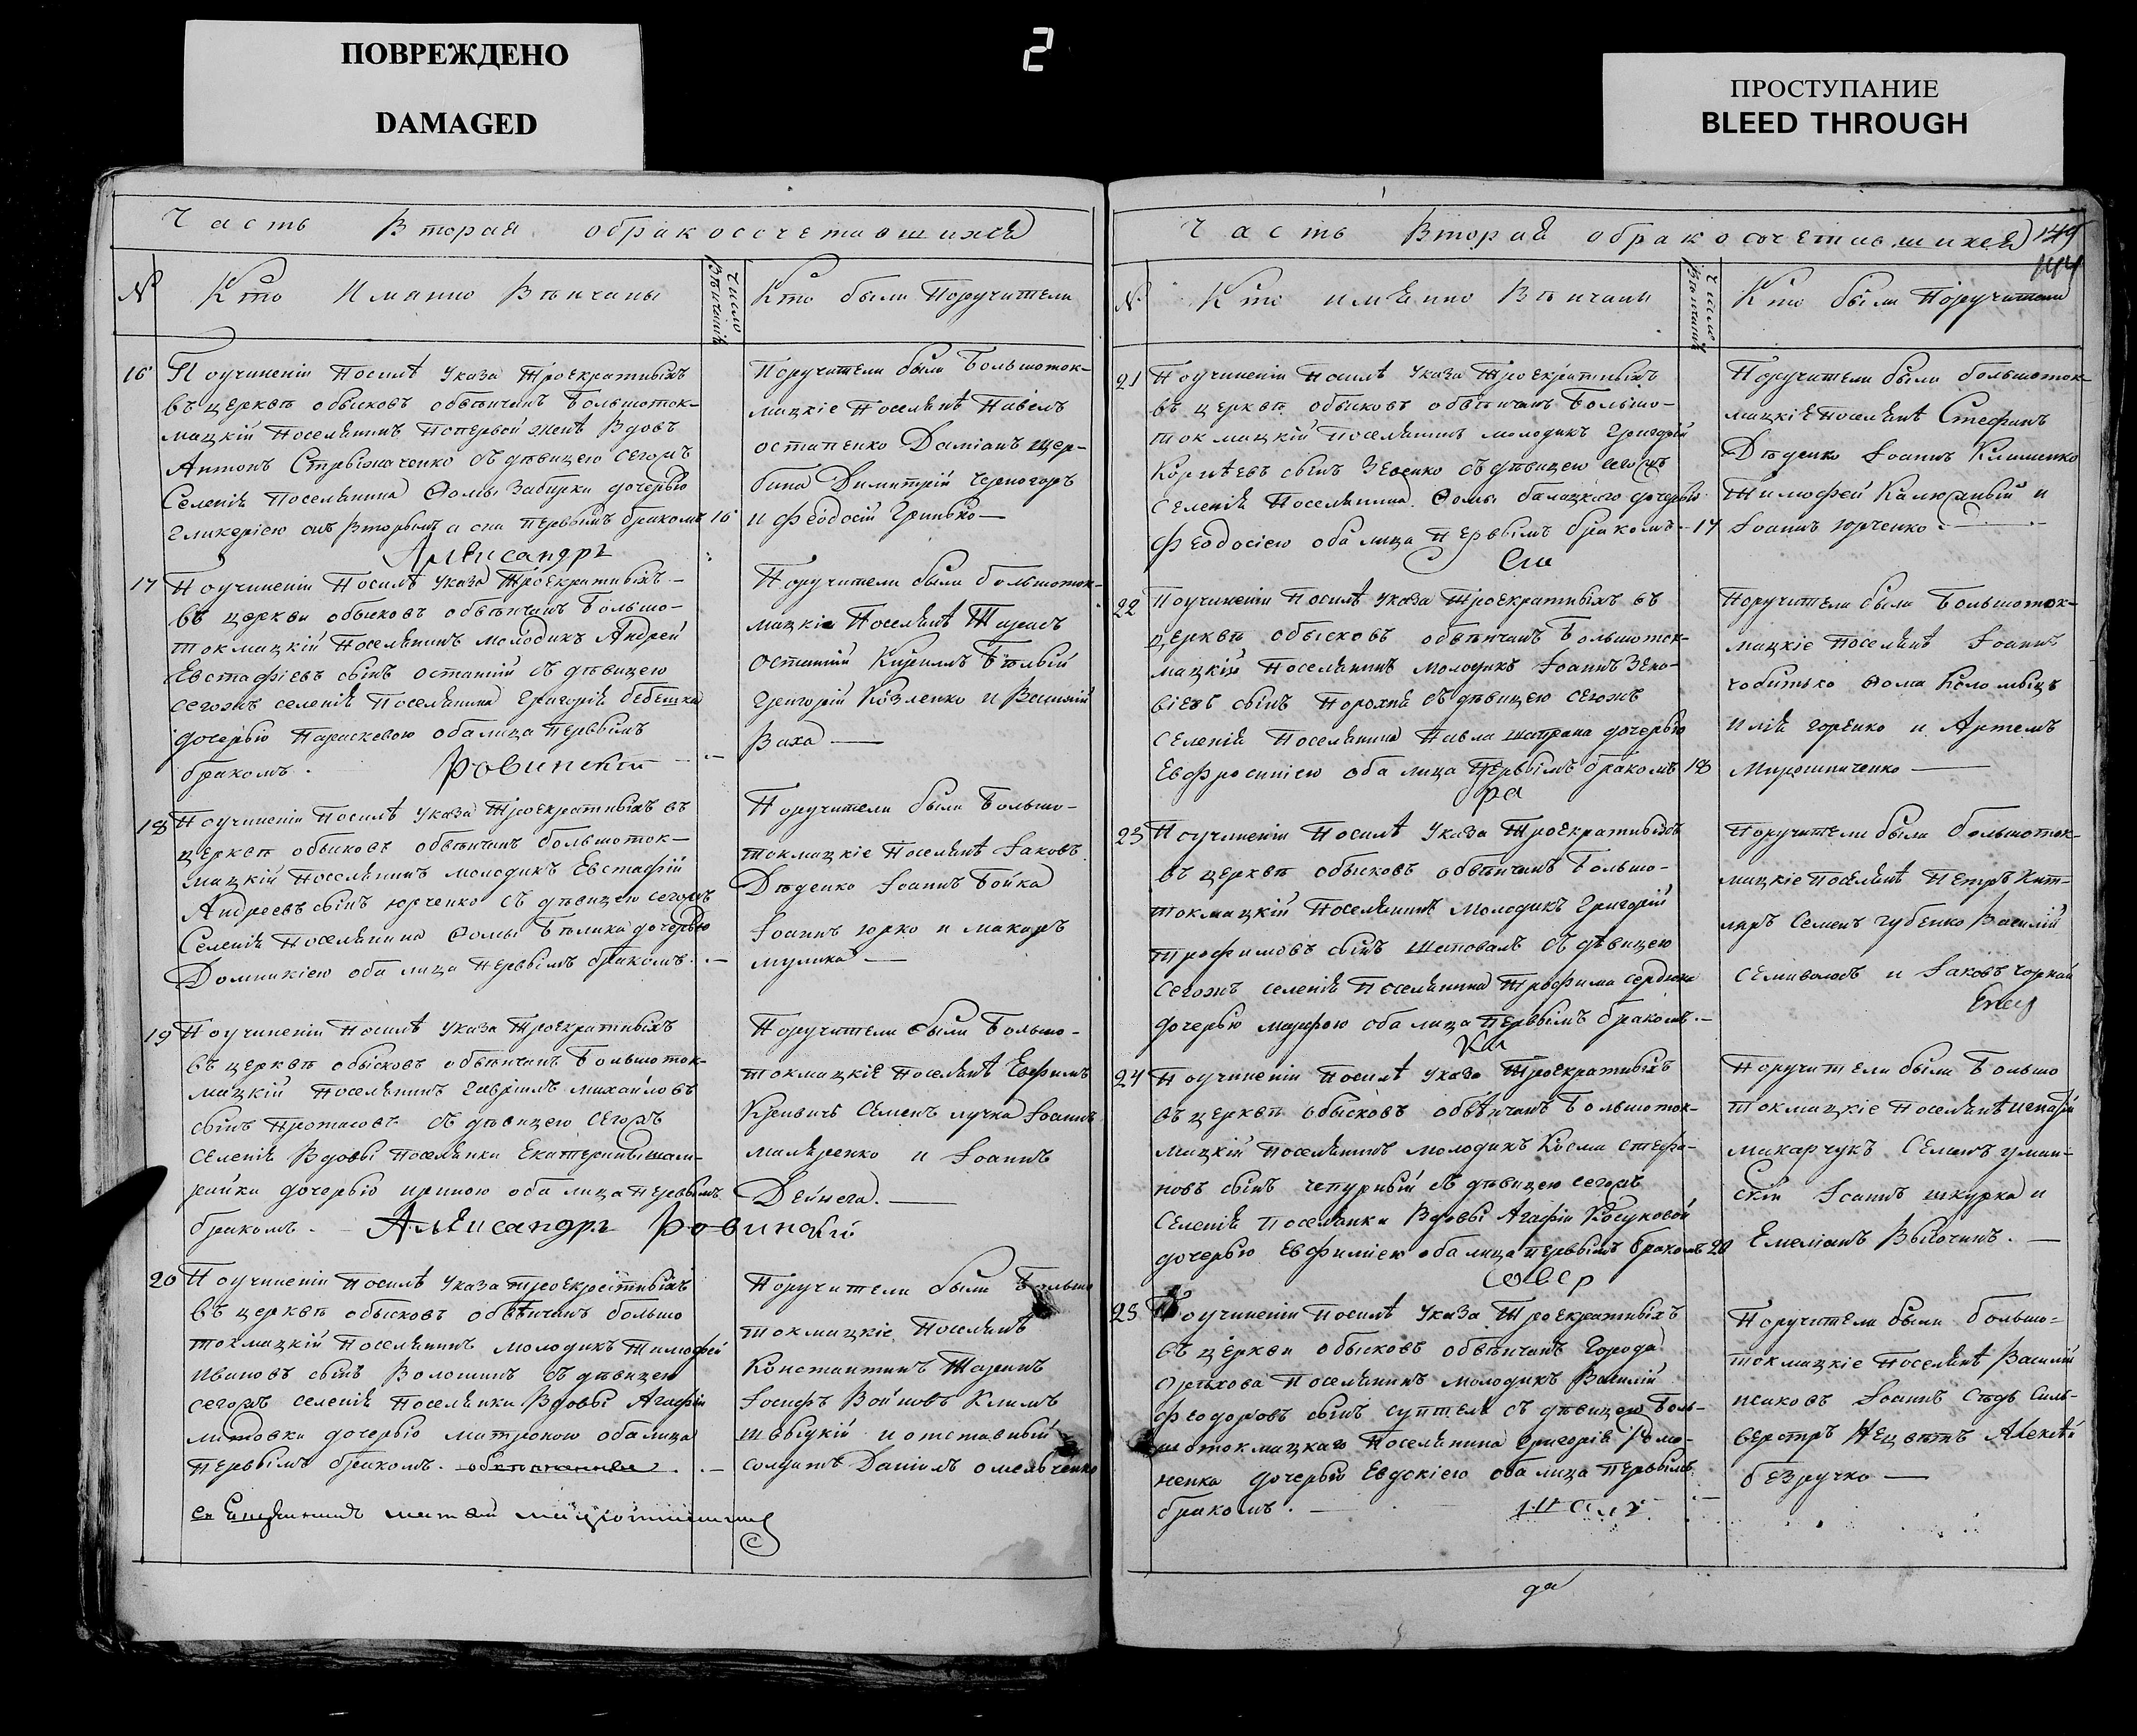 ПОВРЕЖДЕНО
DAMAGED
2
ПРОСТУПАНИЕ
BLEED THROUGH
Часть Вторая обракосочетавшихся
№ Кто Имянно Вѣнчаны
Число Вѣнчаній
Кто были Поручители
16 По учиненіи Посилѣ Указа Троекратныхъ
въ церквѣ обысковъ обвѣнчанъ Большоток-
мацкій Поселянинъ Поперьвой женѣ Вдовъ
Антонъ съ дѣвицею сегожъ
Селенія Поселянина Ѳомы Забирки дочерью
Гликеріею онъ Вторымъ а она Первымъ бракомъ 16
Александръ
Поручители были Большоток-
мацкіе Поселянѣ Павелъ
Остапенко Даміанъ Щер-
бина Димитрій Черногоръ
и Феодосій Гринько
17 По учиненіи Посилѣ Указа Троекратныхъ
въ церкви обысковъ обвѣнчанъ Большо-
токмацкій Поселянинъ молодикъ Андрей
Евстафіевъ сынъ Останній съ дѣвицею
сегожъ селенія Поселянина Григорія
дочерью Параскевою оба лица Первымъ
бракомъ. Ровинскій
Поручители были большоток-
мацкіе Поселянѣ Тарасъ
Останній Кирилъ Бѣлый
Григорій Козленко и Василій
Ваха
18 По учиненіи Посилѣ Указа Троекратныхъ въ
церквѣ обысковъ обвѣнчанъ большоток-
мацкій Поселянинъ молодикъ Евстафій
Андреевъ сынъ Юрченко съ дѣвицею сегожъ
Селенія Поселянина Ѳомы Бѣлика дочерью
Домникіею оба лица Первымъ бракомъ.
Поручители были Большо-
токмацкіе Поселянѣ Іаковъ
Дѣденко Іоаннъ Бойка
Іоаннъ Юрко и Макаръ
Мулика
19 По учиненіи Посилѣ Указа Троекратныхъ
въ церквѣ обысковъ обвѣнчанъ Большоток-
мацкій Поселянинъ Гавріилъ Михайловъ
сынъ Протасовъ съ дѣвицею Сегожъ
Селенія Вдовы Поселянки Екатерины
дочерью Ириною оба лица Первымъ
бракомъ. Александръ Ровинскій
Поручители были Большо-
токмацкіе Поселянѣ Евфимъ
Семенъ Лучка Іоаннъ
Маляренко и Іоаннъ
Дейнега.
20 По учиненіи Посилѣ Указа Троекратныхъ
въ церквѣ обысковъ обвѣнчанъ большо
токмацкій Поселянинъ молодикъ Тимофей
Ивановъ сынъ Волошинъ съ дѣвицею
сегожъ селенія Поселянки Вдовы Агафіи
дочерью Матроною оба лица
Первымъ бракомъ.
Поручители были Большо
токмацкіе Поселянѣ
Константинъ Таранъ
Іосифъ Войновъ Климъ
и отставный
солдатъ Даніилъ Омельченко
Часть Вторая обракосочетавшихся 149
144
№ Кто имянно Вѣнчаны
Число Вѣнчаній
Кто были Поручители
21 По учиненіи Посилѣ Указа Троекратныхъ
въ церквѣ обысковъ обвѣнчанъ Большо-
токмацкій Поселянинъ молодикъ Григорій
Корнѣевъ сынъ съ дѣвицею сегожъ
Селенія Поселянина Ѳомы Балацкого дочерью
Феодосіею оба лица Первымъ бракомъ 17
Сію
Поручители были большоток-
мацкіе Поселянѣ Стефанъ
Дѣденко Іоаннъ Клименко
Тимофей Калюжный и
Іоаннъ Юрченко.
22 По учиненіи Посилѣ Указа Троекратныхъ въ
церквѣ обысковъ обвѣнчанъ Большоток-
мацкій Поселянинъ молодикъ Іоаннъ Зено-
віевъ сынъ Порохня съ дѣвицею Сегожъ
Селенія Поселянина Павла дочерью
Евфросиніею оба лица Первымъ бракомъ 18
ра
Поручители были Большоток-
мацкіе Поселянѣ Іоаннъ
Чобитько Ѳома Коломыецъ
Илія Горенко и Артемъ
Мирошниченко
23 По учиненіи Посилѣ Указа Троекратныхъ
въ церквѣ обысковъ обвѣнчанъ Большо-
токмацкій Поселянинъ Молодикъ Григорій
Трофимовъ сынъ Шаповалъ съ дѣвицею
Сегожъ селенія Поселянина Трофима Сердюка
дочерью Марфою оба лица Первымъ бракомъ.
Поручители были большоток-
мацкіе Поселянѣ Петръ Кит-
ляръ Семенъ Губенко Василій
Семиволосъ и Іаковъ Чорный
24 По учиненіи Посилѣ Указа Троекратныхъ
въ церквѣ обысковъ обвѣнчанъ Большоток-
мацкій Поселянинъ молодикъ Косма Стефа-
новъ сынъ Чепурный съ дѣвицею сегожъ
Селенія Поселянки Вдовы Агафіи
дочерью Евфиміею оба лица первымъ бракомъ 20
совер
Поручители были Большо
токмацкіе Поселянѣ Игнатій
Макарчукъ Семенъ Уман-
скій Іоаннъ Шкурка и
Емеліанъ
25 По учиненіи Посилѣ Указа Троекратныхъ
въ церкви обысковъ обвѣнчанъ Города
Орѣхова Поселянинъ молодикъ Василій
Феодоровъ сынъ съ дѣвицею Боль-
шотокмацкаго Поселянина Григорія Рома-
ненка дочерью Евдокіею оба лица Первымъ
бракомъ.
Поручители были большо-
токмацкіе Поселянѣ Василій
Исаковъ Іоаннъ Сѣдъ Силь-
верстръ Нецвѣтъ Алексѣй
Безручко